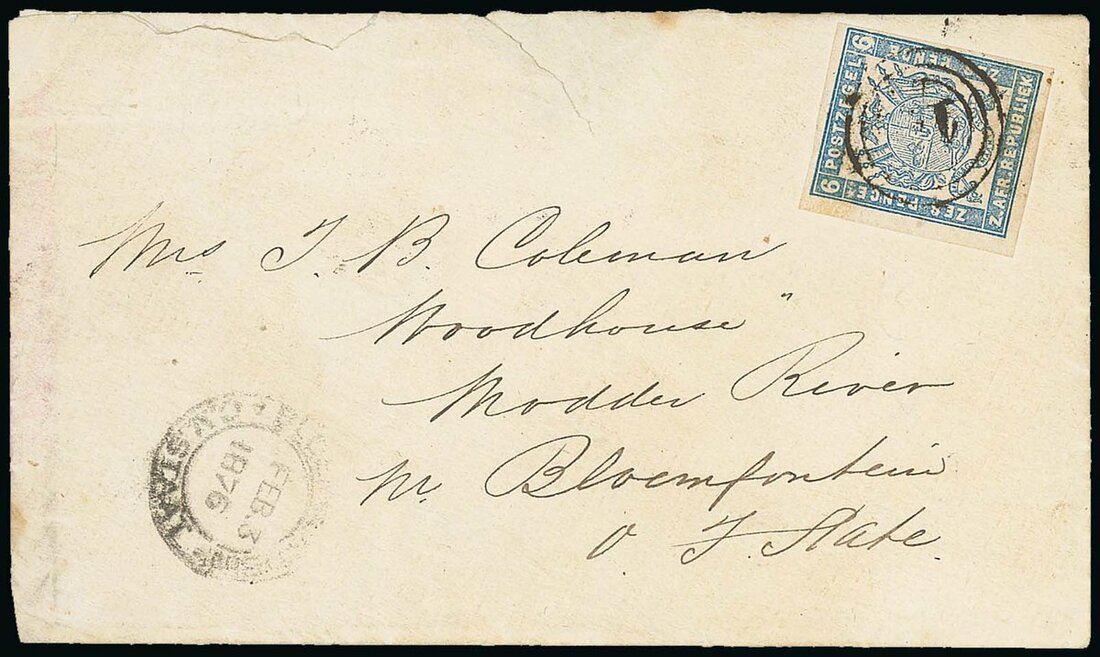 6 POSTZEGEL 6
ZES PENCE
Z. AFR. REPUBLIEK
ZES PENCE
1
Mrs J. B. Coleman
Woodhouse"
Modder River
nr Bloemfontein
O F. State.
FEB. 3
1876